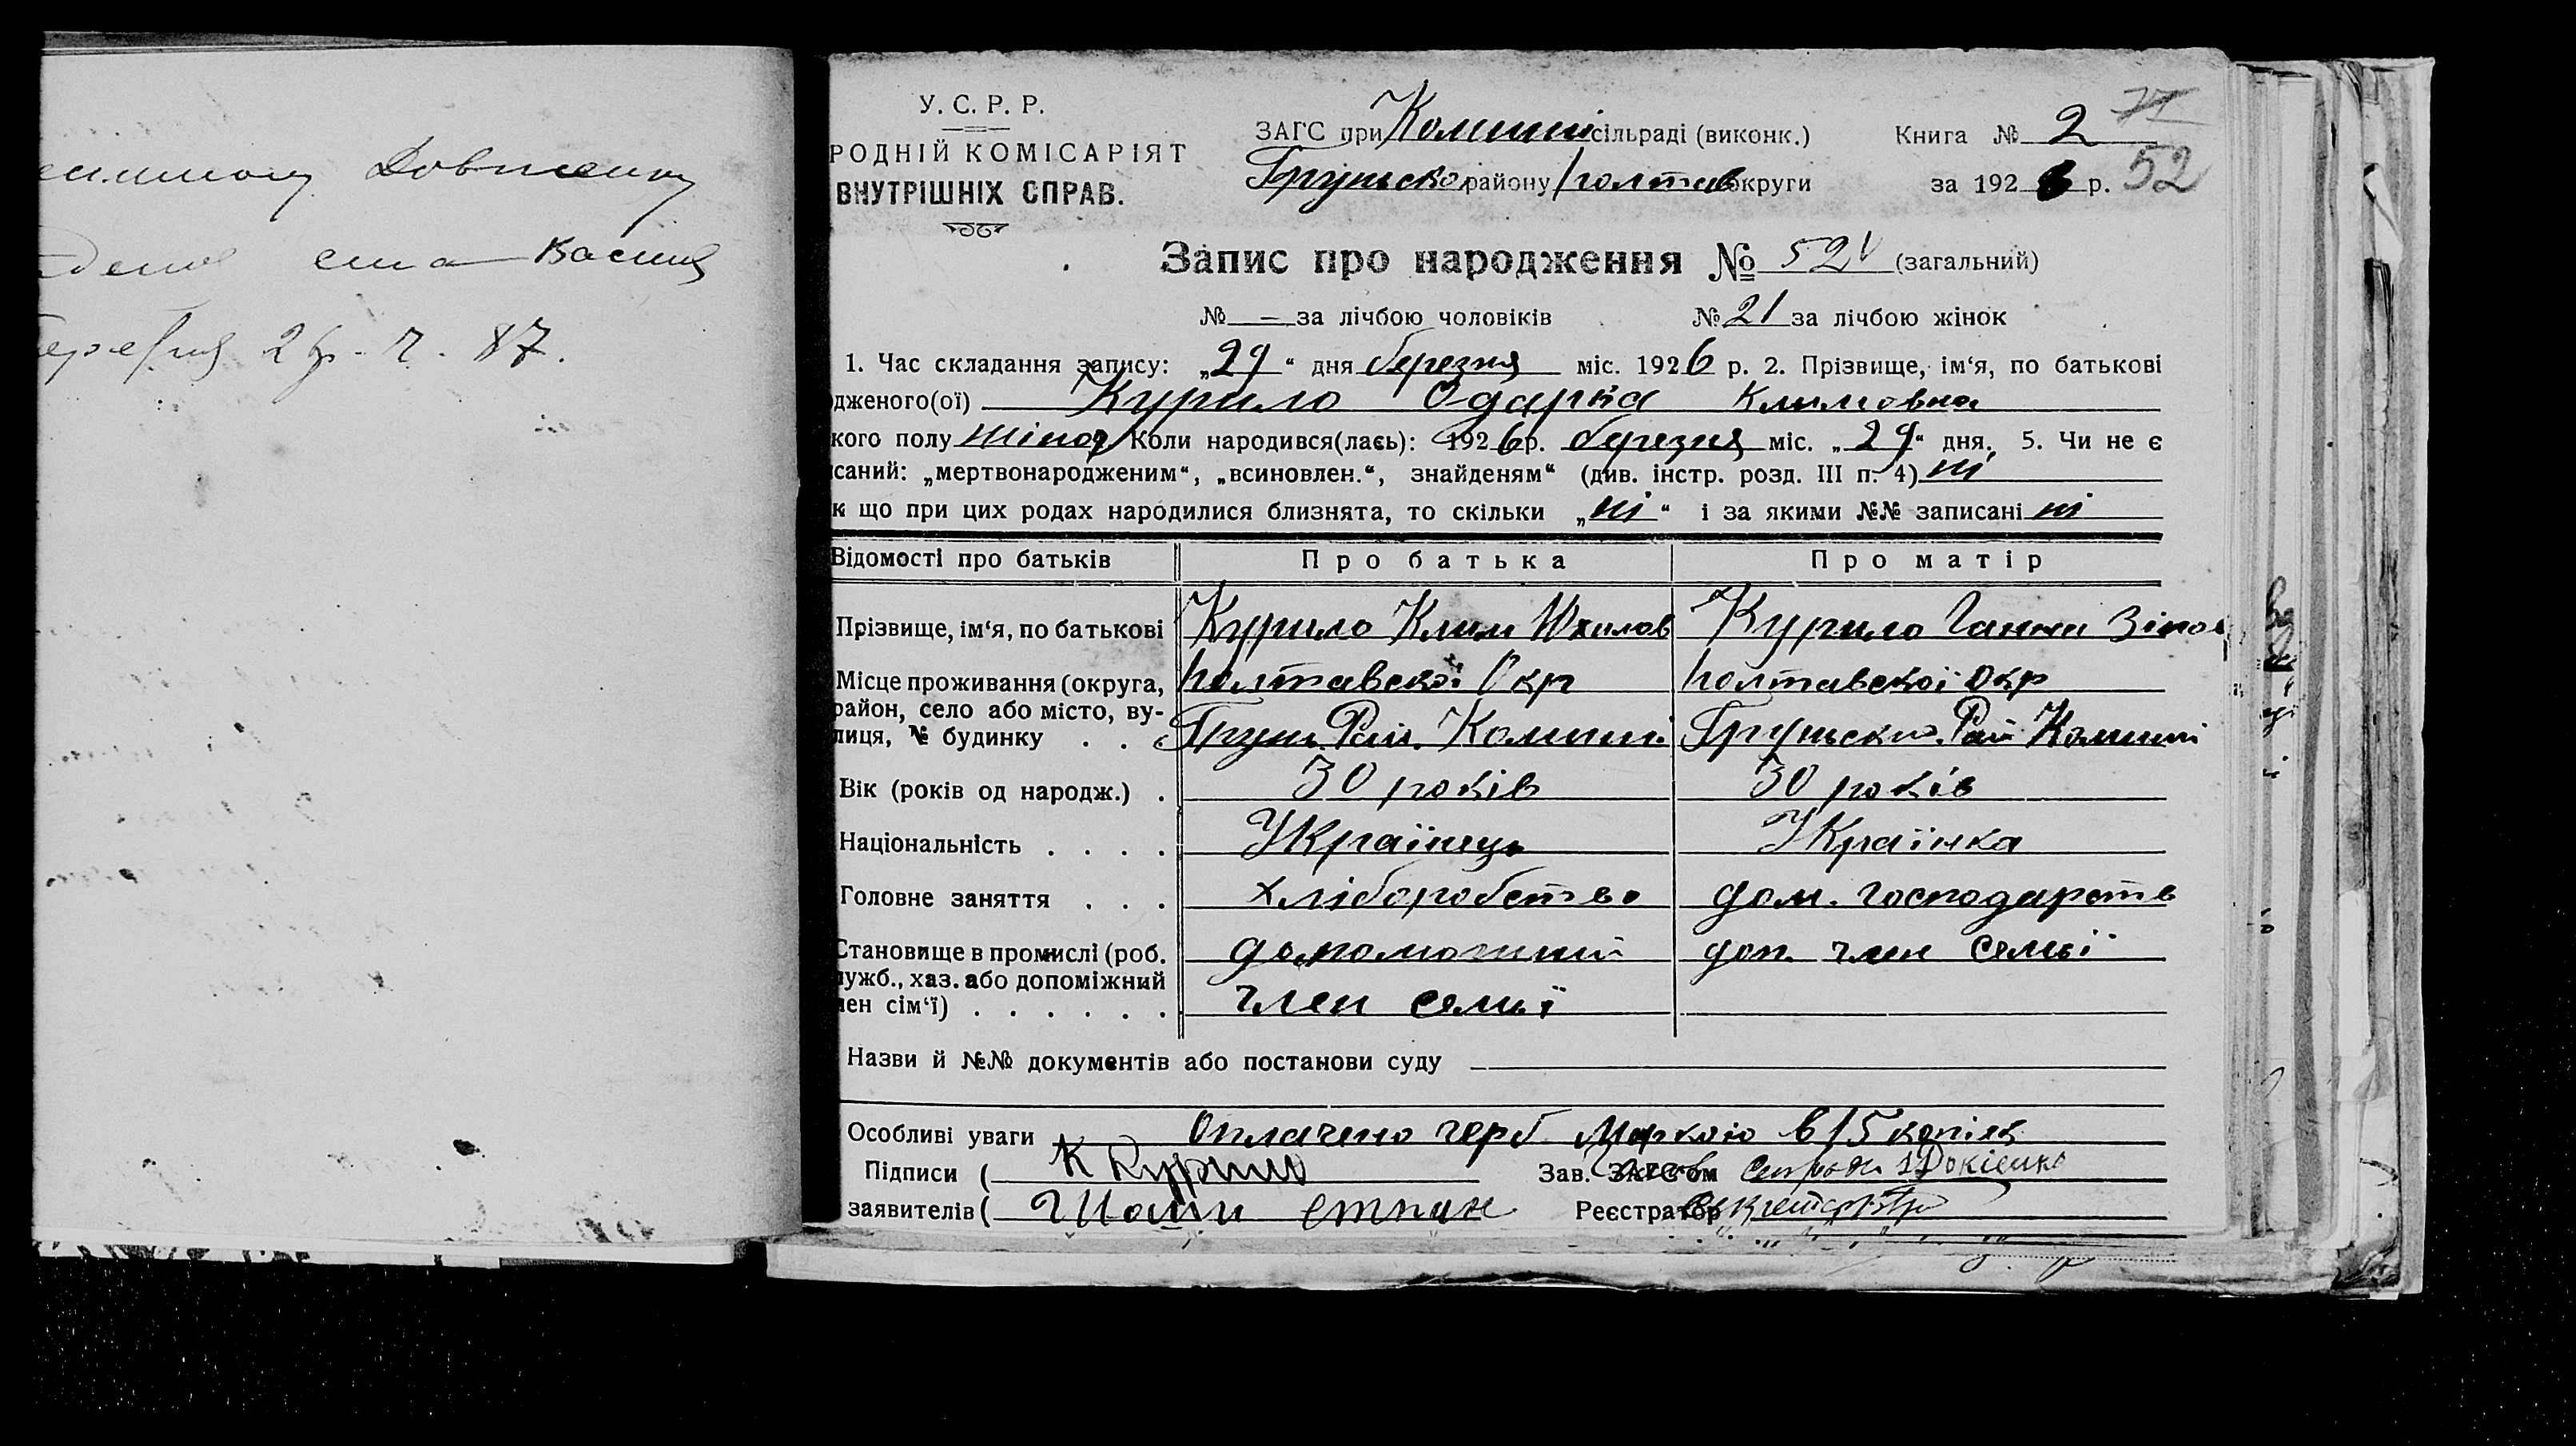 Довженку
сина
Васил
87.
У. С. Р. Р.
РОДНІЙ КОМІСАРІЯТ
ВНУТРІШНІХ СПРАВ.
ЗАГС при Комиші сільраді (виконк.)
Грунсько району Полтав округи
Книга № 2 71
за 1926 р. 52
Запис про народження № 52 (загальний)
№ — за лічбою чоловіків № 21 за лічбою жінок
1. Час складання запису: „29“ дня березня міс. 1926 р. 2. Прізвище, ім‘я, по батькові
дженого(ої) Курило Одарка Климовна
кого полу жіноч Коли народився(лась): 1926 р. березня міс. „29“ дня. 5. Чи не є
саний: „мертвонародженим“, „всиновлен.“, знайденям“ (див. інстр. розд. III п. 4) ні
к що при цих родах народилися близнята, то скільки „ні“ і за якими №№ записані ні
Відомості про батьків Про батька Про матір
Прізвище, ім‘я, по батькові Курило Клим Юхимов Курило Ганна Зінов
Місце проживання (округа, Полтавскої Окр Полтавскої Окр
район, село або місто, ву-
лиця, № будинку . . Грун. Рай. Комиші Грунськи. Рай Комиші
Вік (років од народж.) . 30 років 30 років
Національність . . . . Українець Українка
Головне заняття . . . хліборобство дом. господарств
Становище в промислі (роб. допоможний доп. член семьї
лужб., хаз. або допоміжний
лен сім‘ї) . . . . . . член семьї
Назви й №№ документів або постанови суду
Особливі уваги Оплачено герб Маркою в 15 копіяк
Підписи ( К Курило Зав. ЗАГС‘ом
заявителів ( Реєстратор